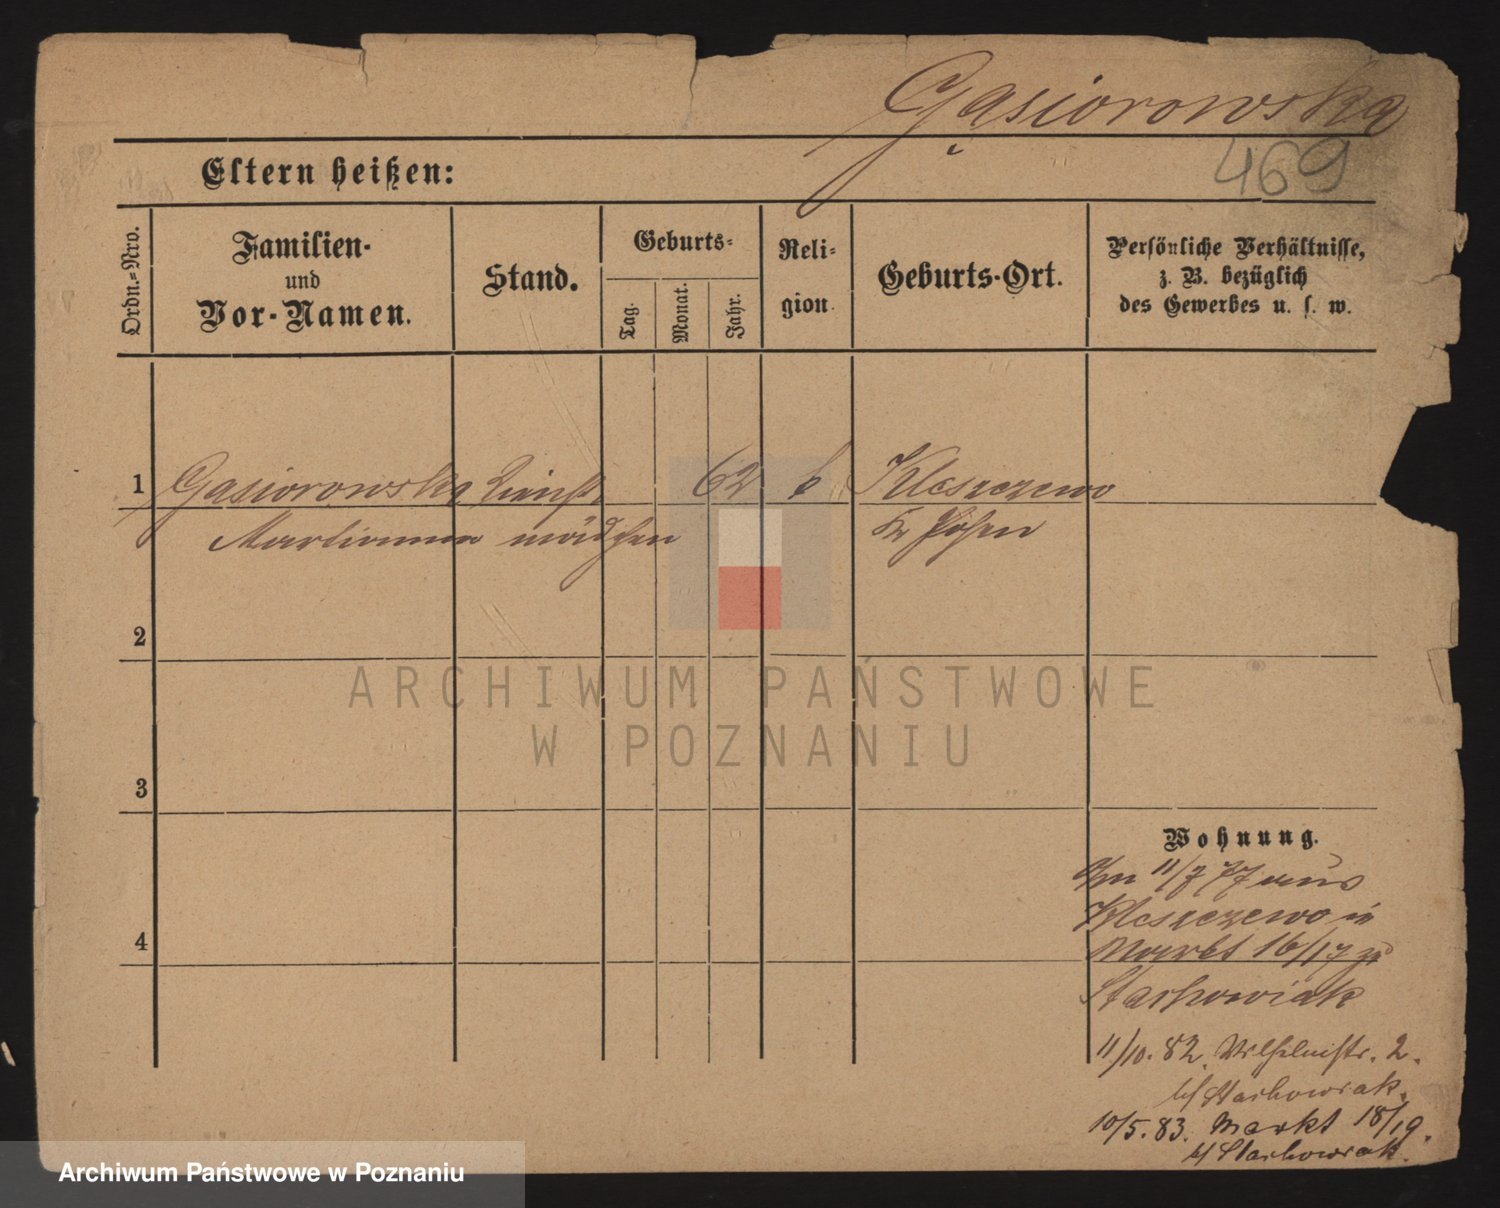 Gąsiorowska
469
Eltern heißen:
Ordn.=Nro.
Familien-
und
Vor-Namen.
Stand.
Geburts=
Tag.
Monat.
Jahr.
Reli-
gion.
Geburts-Ort.
Persönliche Verhältnisse,
z. B. bezüglich
des Gewerbes u. s. w.
1 Gasiorowska Dienst 62 k Kleszczewo
Marianna mädchen Kr Posen
2
3
4
Wohnung.
Am 11/7 77 aus
Kleszczewo in
Markt 16/17 zu
Stachowiak
11/10. 82. Wilhelmstr. 2.
b/ Stachowiak.
10/5. 83. Markt 18/19.
b/ Stachowiak.
ARCHIWUM PAŃSTWOWE
W POZNANIU
Archiwum Państwowe w Poznaniu